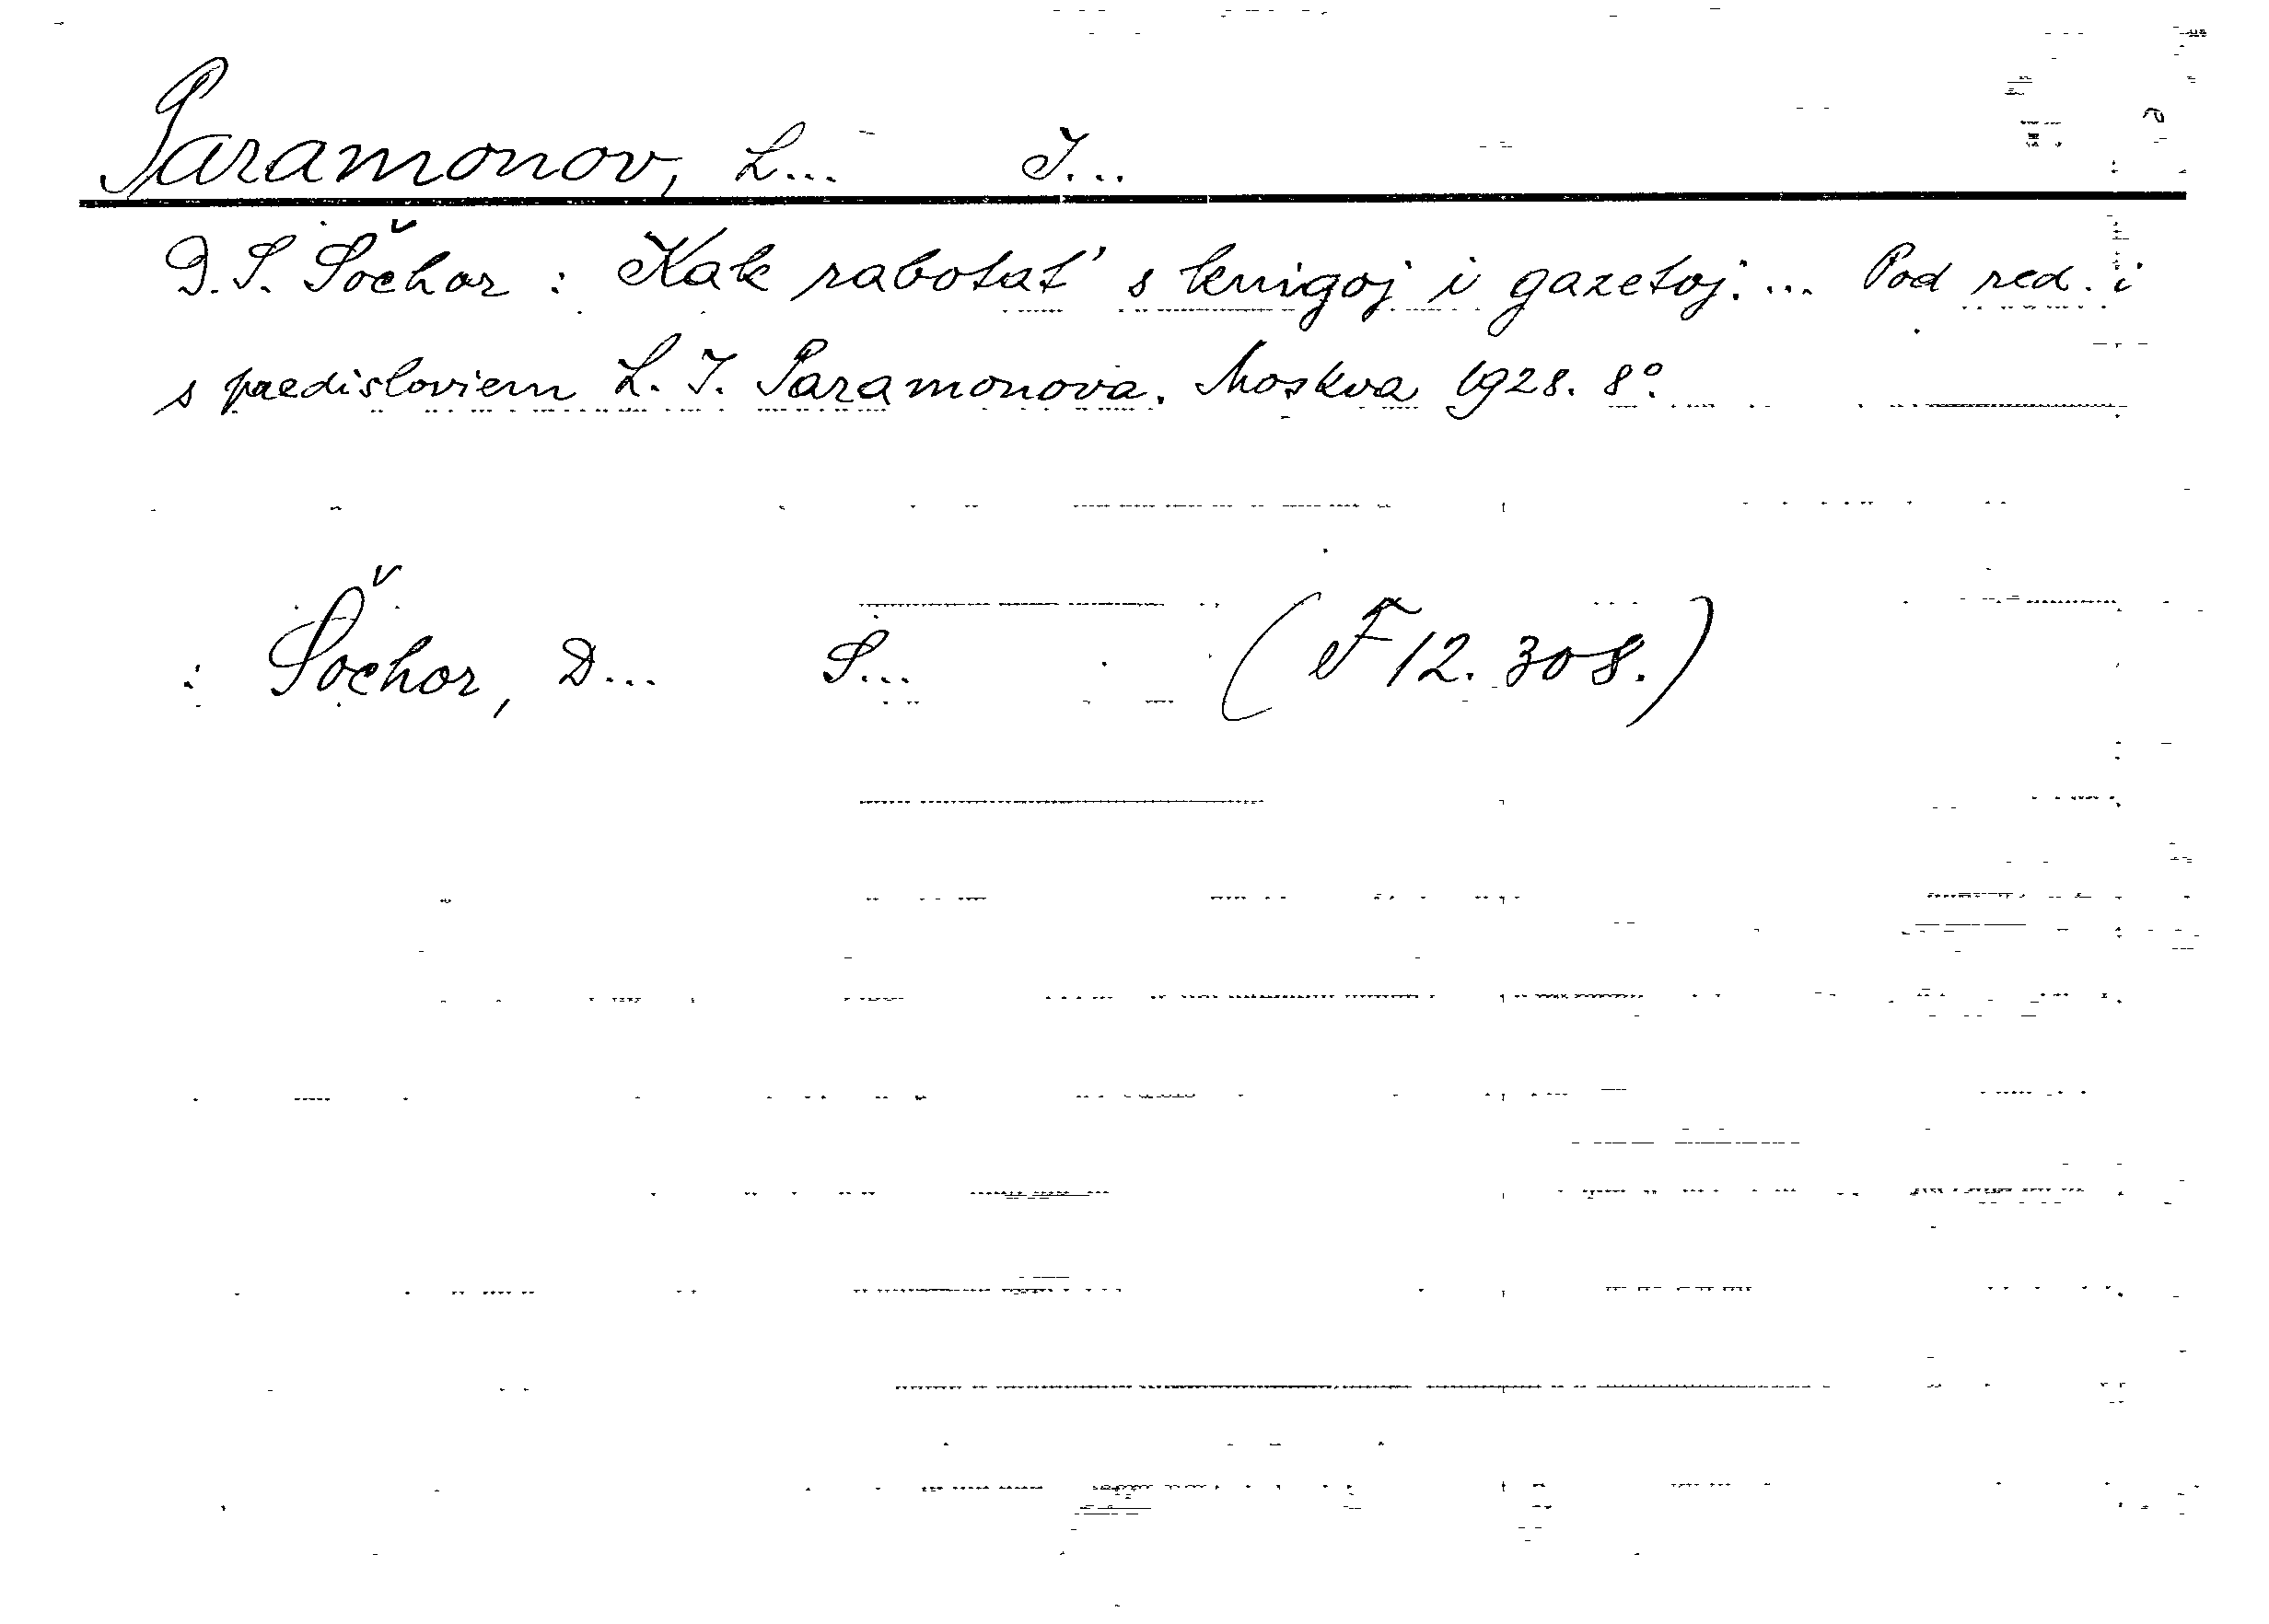 Paramonov, L... I...
D. S. Šochor : Kak rabotat' s knigoj i gazetoj. ... Pod red. i
s predisloviem L. I. Paramonova. Moskva 1928. 8°.
: Šochor, D... S... (F 12. 308.)